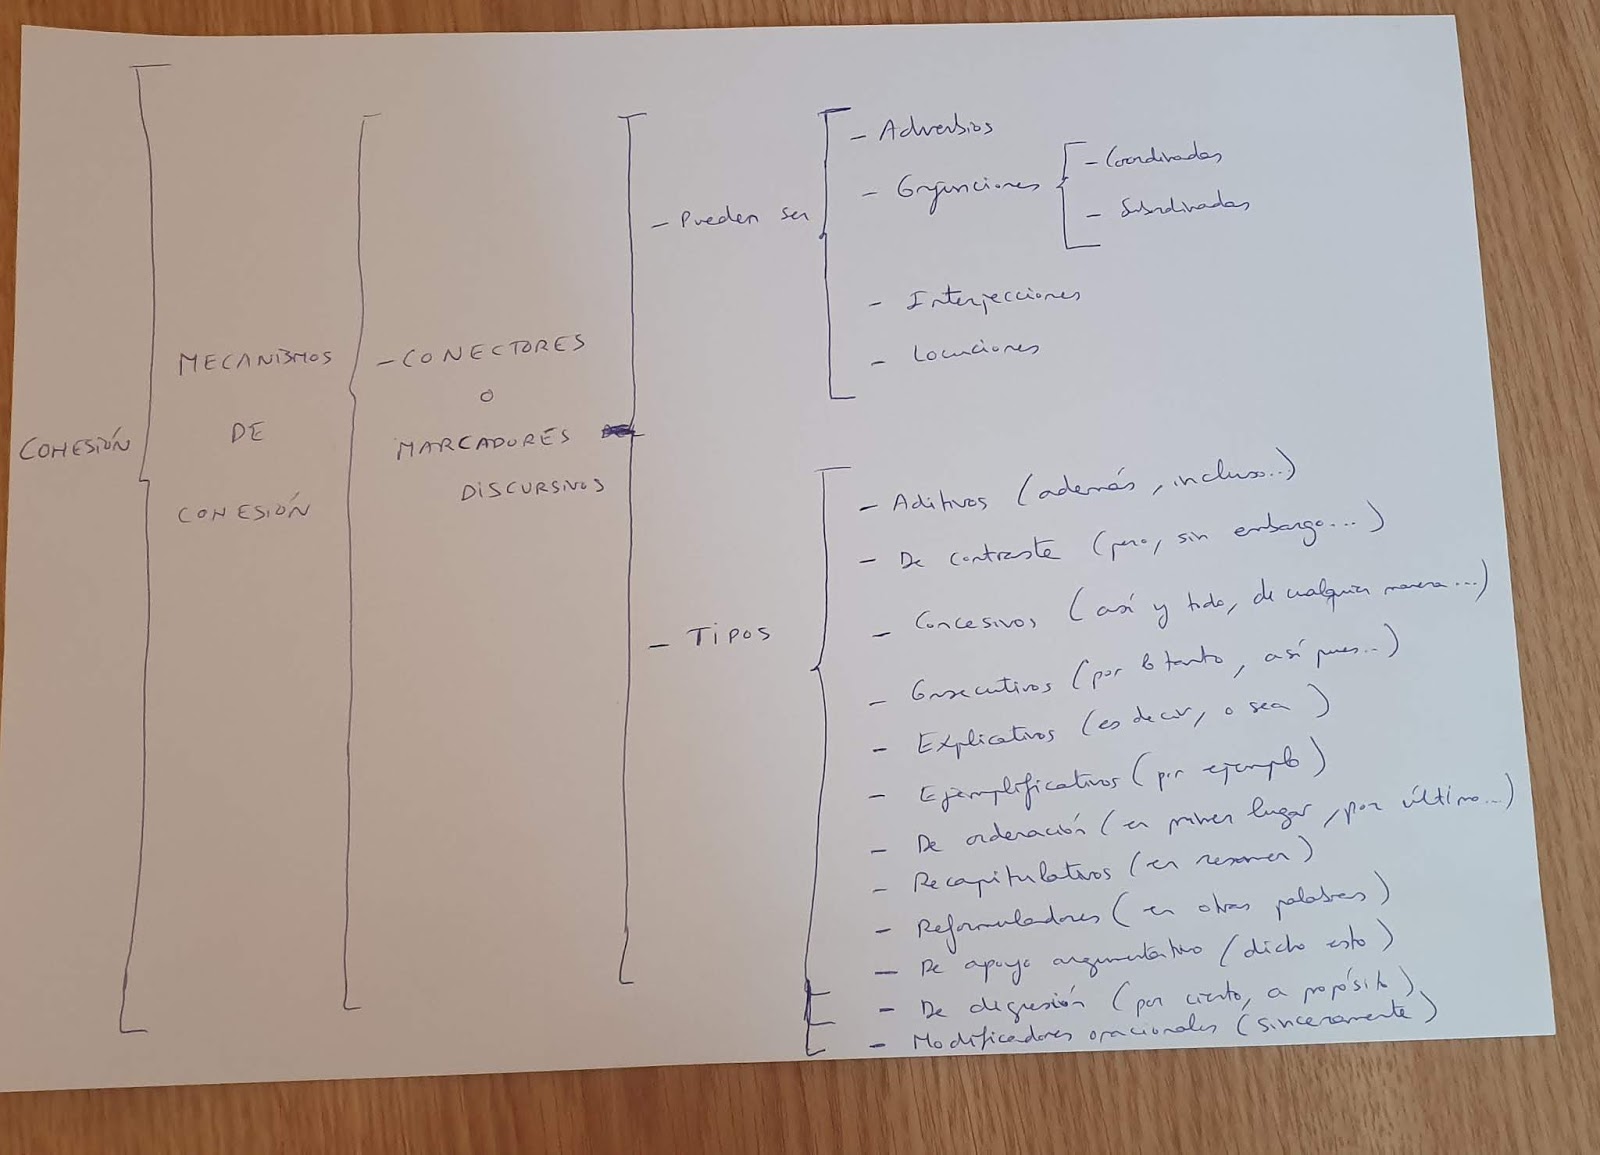 COHESIÓN
MECANISMOS
DE
COHESIÓN
- CONECTORES
O
MARCADORES
DISCURSIVOS
- Pueden ser
- Adverbios
- Conjunciones
- Coordinadas
- Subordinadas
- Interjecciones
- Locuciones
- TIPOS
- Aditivos (además, incluso...)
- De contraste (pero, sin embargo...)
- Concesivos (así y todo, de cualquier manera...)
- Consecutivos (por lo tanto, así pues...)
- Explicativos (es decir, o sea)
- Ejemplificativos (por ejemplo)
- De ordenación (en primer lugar, por último...)
- Recapitulativos (en resumen)
- Reformuladores (en otras palabras)
- De apoyo argumentativo (dicho esto)
- De digresión (por cierto, a propósito)
- Modificadores oracionales (sinceramente)